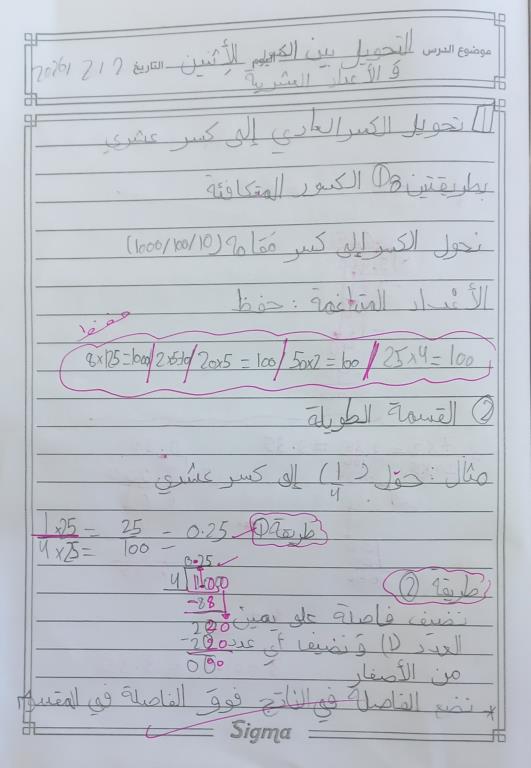 موضوع الدرس التحويل بين الكسور اليوم الإثنين التاريخ 2026/2/2
و الأعداد العشرية
1 تحويل الكسر العادي إلى كسر عشري
بطريقتين: ① الكسور المتكافئة
نحول الكسر إلى كسر مقامه (10/100/1000)
الأعداد المتناغمة: حفظ
حفظ
8x125=1000/2x5=10/20x5=100/50x2=100/25x4=100
② القسمة الطويلة
مثال: حوّل (1/4) إلى كسر عشري
طريقة ①
1x25/4x25 = 25/100 = 0.25
طريقة ②
0.25
4
نضيف فاصلة على يمين
العدد (1) و نضيف أي عدد
من الأصفار
* نضع الفاصلة في الناتج فوق الفاصلة في المقسوم
Sigma